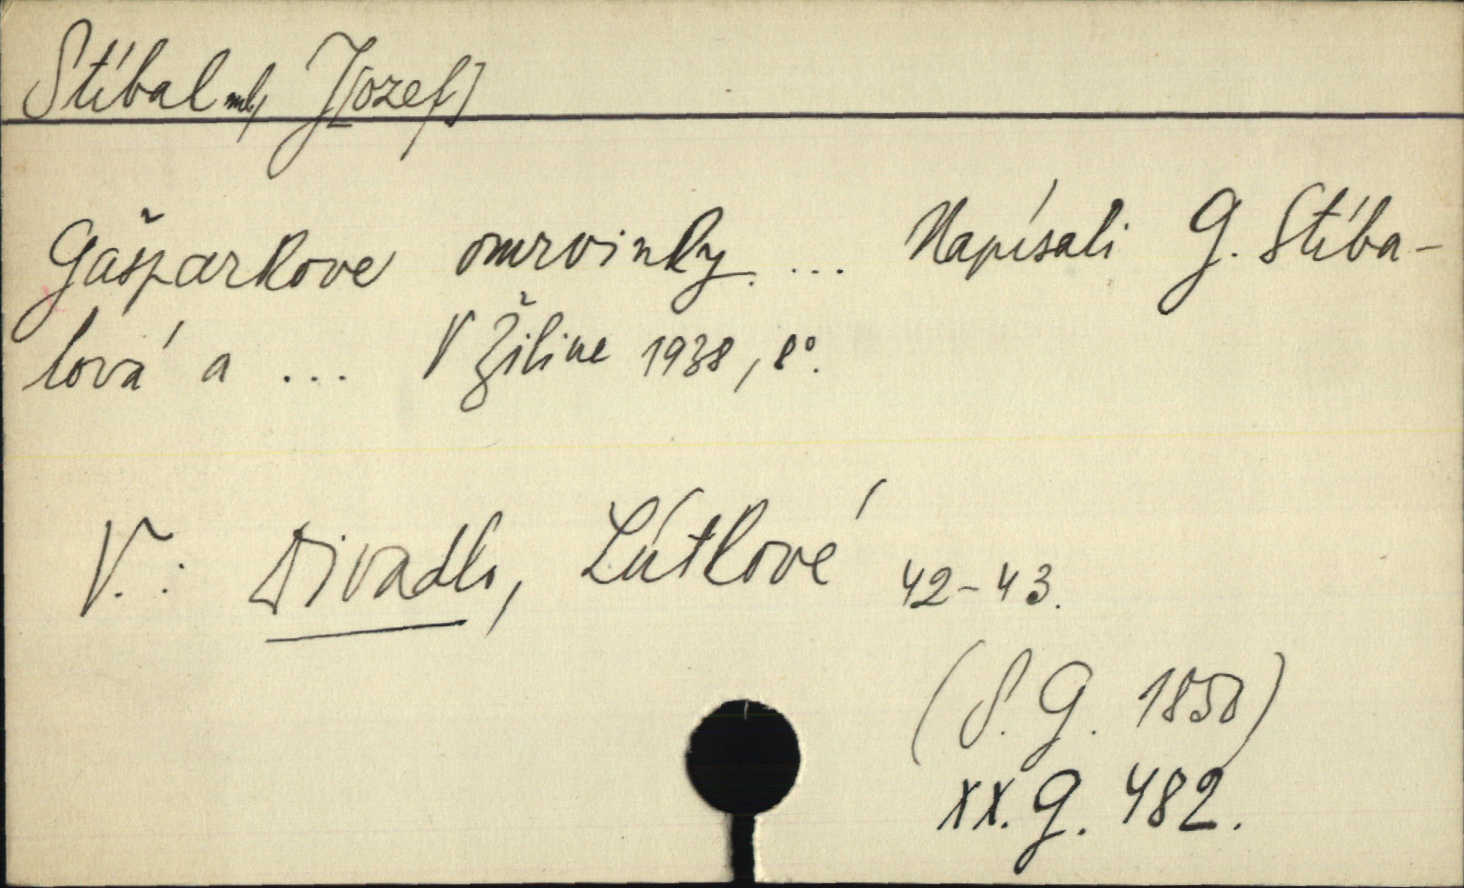 Stíbal ml, J[ozef]
Gašparkove omrvinky ... Napísali G. Stíba-
lová a ... V Žiline 1938, 8°.
V.: Divadlo, Lútkové 42-43.
(S. G. 1850)
XX. G. 482.